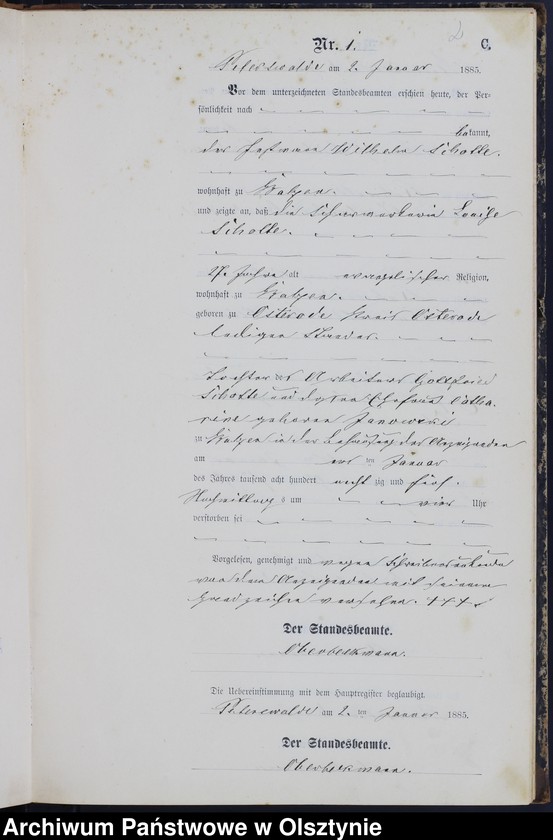 Nr. 1.
C.
Peterswalde am 2. Januar 1885.
Vor dem unterzeichneten Standesbeamten erschien heute, der Per-
sönlichkeit nach
bekannt,
der Wilhelm Scholle.
wohnhaft zu
und zeigte an, daß die Louise
Scholle.
27 Jahre alt evangelischer Religion,
wohnhaft zu
geboren zu Osterode Kreis Osterode
ledigen Standes.
Tochter des Arbeiters Gottfried
Scholle und dessen Ehefrau Catha-
rine geboren Janowski
zu in der Behausung des Anzeigenden
am ten Januar
des Jahres tausend acht hundert acht zig und fünf
Nachmittags um vier Uhr
verstorben sei
Vorgelesen, genehmigt und wegen Schreibensunkunde
von dem Anzeigenden mit seinem
Handzeichen versehen. +++
Der Standesbeamte.
Oberbeckmann.
Die Uebereinstimmung mit dem Hauptregister beglaubigt.
Peterswalde am 2. ten Januar 1885.
Der Standesbeamte.
Oberbeckmann.
Archiwum Państwowe w Olsztynie